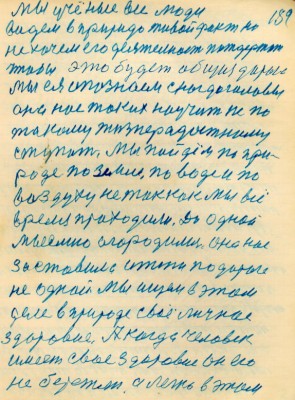 мы учёные все люди
139
видем в природе живой факт но
не хочем его деятельност потдержат
чтобы это будет общая дорога
Мы ея опознаем с ног до головы
она нас таких научит не по
такому
ступат, Мы пойдём по при-
роде по земли, по воде и по
воздуху не так как мы всё
время проходили. До одной
мы
она нас
заставила итти по дороге
не одной Мы ищем в этом
деле в природе своё личное
здоровие, А когда человек
имеет свое здоровие он его
не бережет. а легко в этом